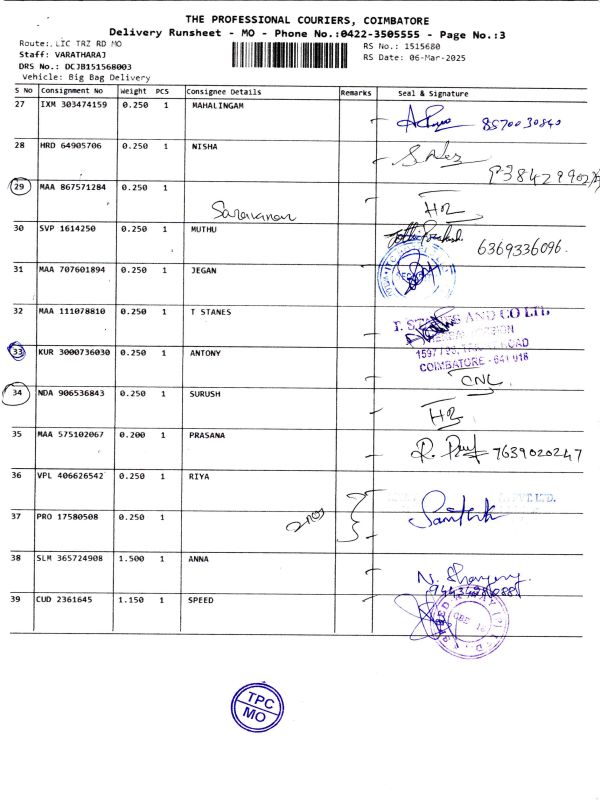 THE PROFESSIONAL COURIERS, COIMBATORE
Delivery Runsheet - MO - Phone No.:0422-3505555 - Page No.:3
Route: LIC TRZ RD MO
Staff: VARATHARAJ
DRS No.: DCJB151568003
Vehicle: Big Bag Delivery
RS No.: 1515680
RS Date: 06-Mar-2025
S No Consignment No Weight PCS Consignee Details Remarks Seal & Signature
27 IXM 303474159 0.250 1 MAHALINGAM
8570030840
28 HRD 64905706 0.250 1 NISHA
Sales
29 MAA 867571284 0.250 1
Saravanan
HR
30 SVP 1614250 0.250 1 MUTHU
6369336096
31 MAA 707601894 0.250 1 JEGAN
32 MAA 111078810 0.250 1 T STANES
AND CO LTD
COIMBATORE - 641 018
33 KUR 3000736030 0.250 1 ANTONY
CNL
34 NDA 906536843 0.250 1 SURUSH
HR
35 MAA 575102067 0.200 1 PRASANA
7639020247
36 VPL 406626542 0.250 1 RIYA
PVT LTD.
37 PRO 17580508 0.250 1
2 nos
38 SLM 365724908 1.500 1 ANNA
39 CUD 2361645 1.150 1 SPEED
TPC
MO